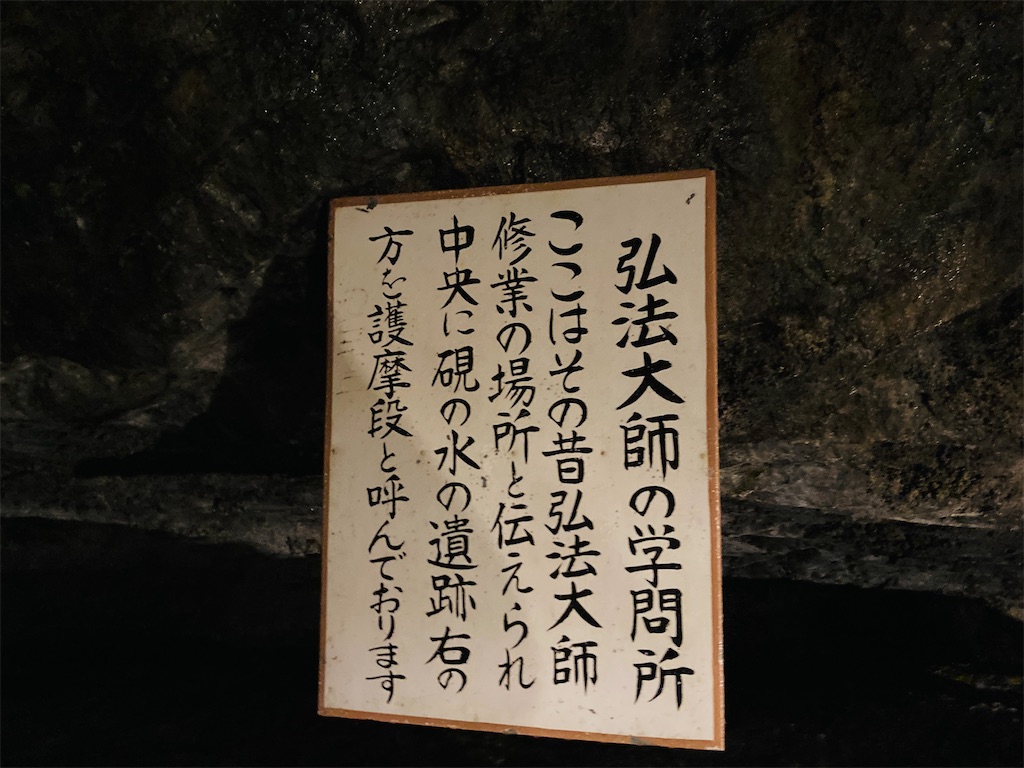 弘法大師の学問所
ここはその昔弘法大師
修業の場所と伝えられ
中央に硯の水の遺跡右の
方を護摩段と呼んでおります